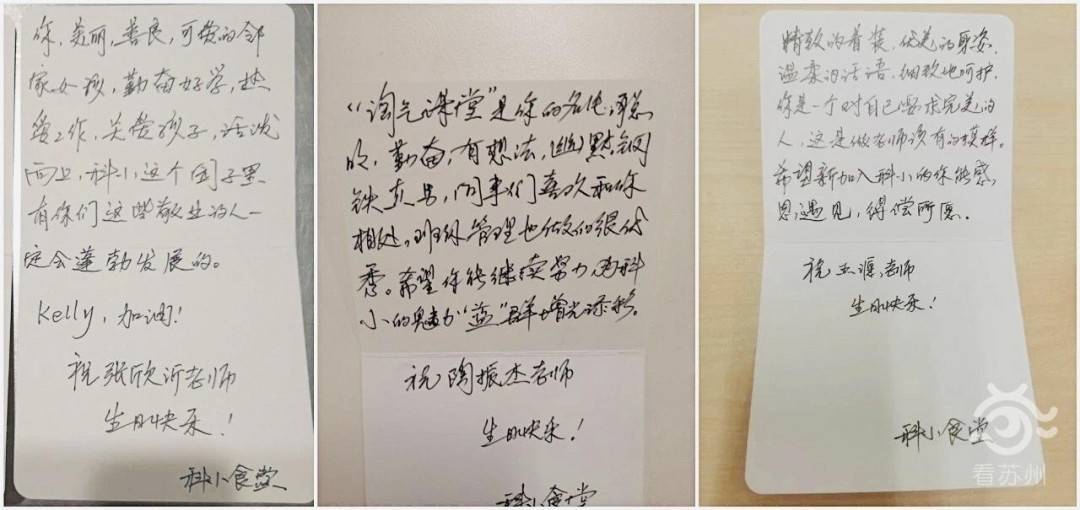 你，美丽，善良，可爱的邻
家女孩，勤奋好学，热
爱工作，关爱孩子，活泼
而上，科小这个园子里
有你们这些敬业的人一
定会蓬勃发展的。
Kelly，加油！
祝张欣沂老师
生日快乐！
科小食堂
“淘气课堂”是你的名片，聪
明，勤奋，有想法，幽默钢
铁直男，同事们喜欢和你
相处，班级管理也做的很优
秀。希望你能继续努力为科
小的魅力“蓝”群增光添彩。
祝陶振杰老师
生日快乐！
科小食堂
精致的着装，优美的身姿，
温柔的话语，细致地呵护，
你是一个对自己要求完美的
人，这是做老师该有的模样。
希望新加入科小的你能感
恩遇见，得偿所愿。
祝 老师
生日快乐！
科小食堂
看苏州